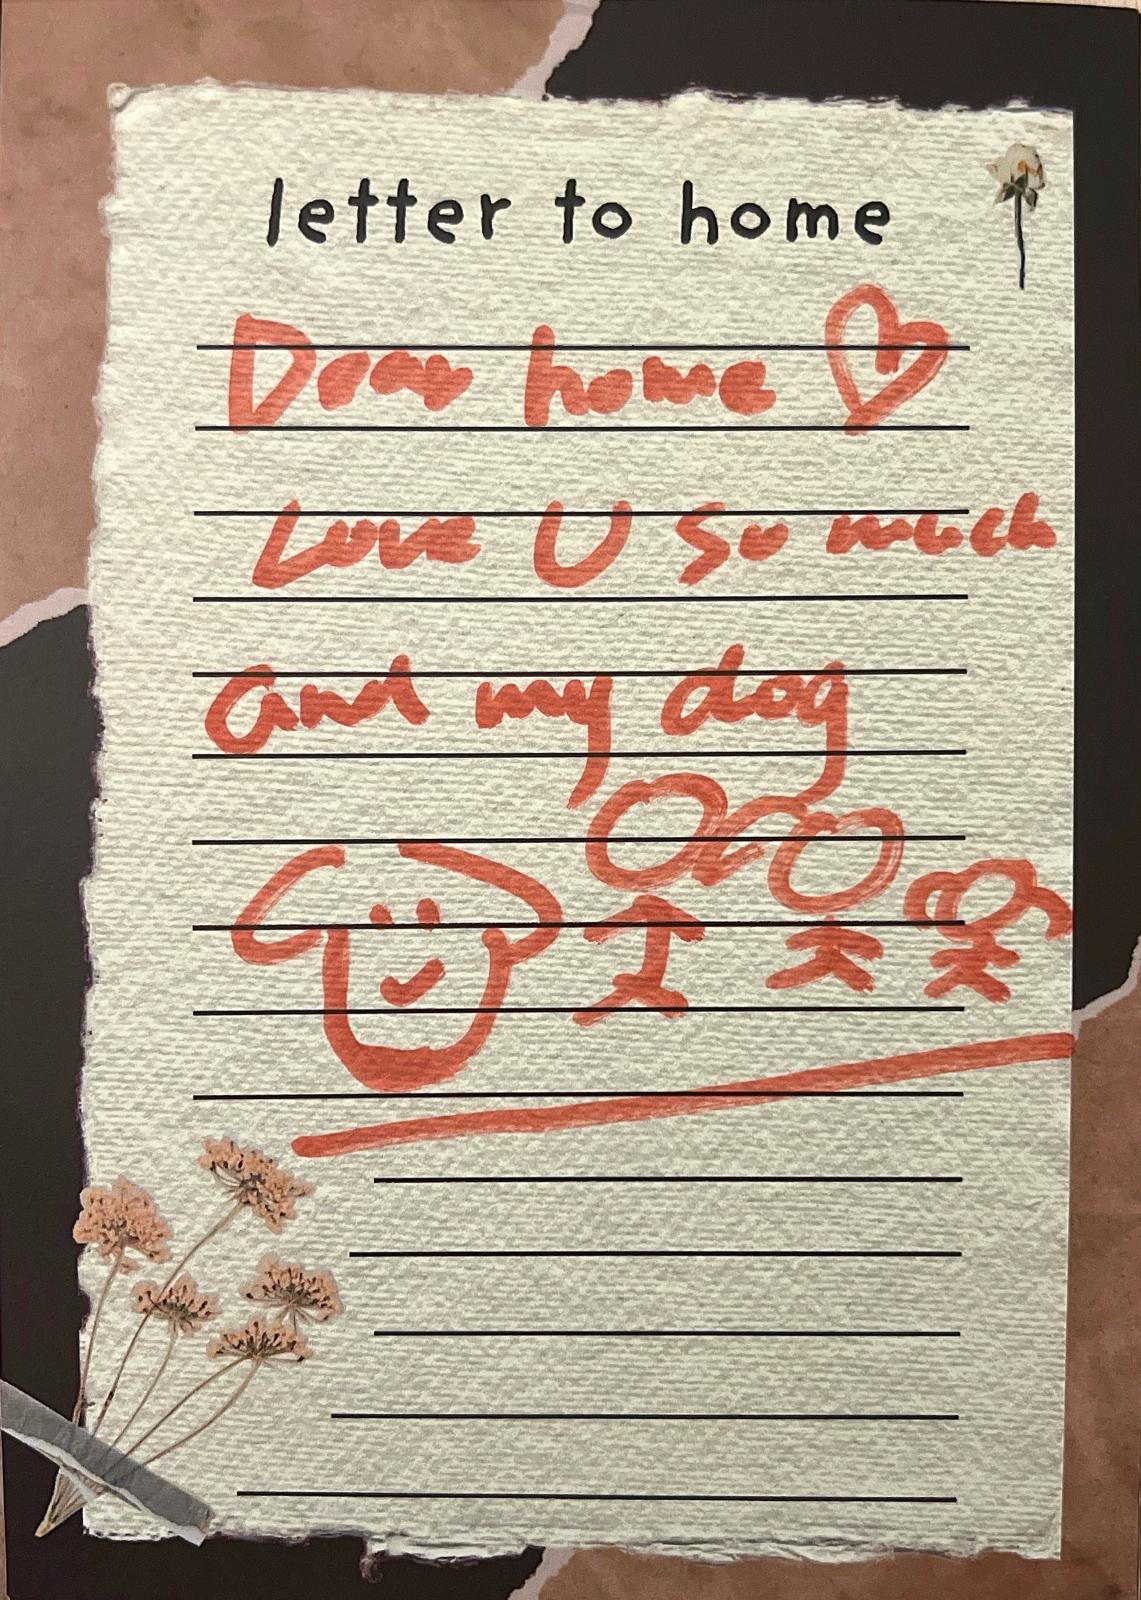 letter to home
Dear home
Love U so much
and my dog